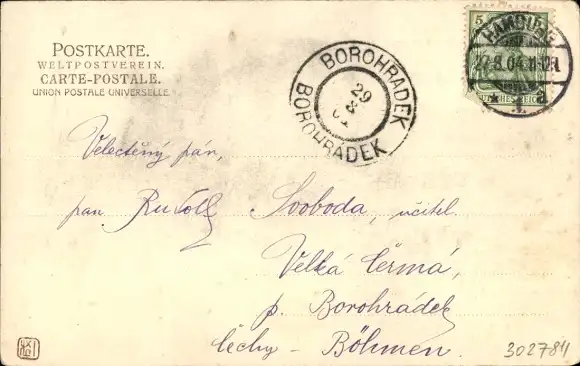 POSTKARTE.
WELTPOSTVEREIN.
CARTE-POSTALE.
UNION POSTALE UNIVERSELLE.
BOROHRADEK
29
8
04
BOROHRÁDEK
5
HAMBURG
27.8.04.11-12
* 1. a
DEUTSCHES REICH
Velectěný pán,
pan Rudolf Svoboda, učitel
Velká Čermá,
p. Borohrádek
Čechy - Böhmen.
302784